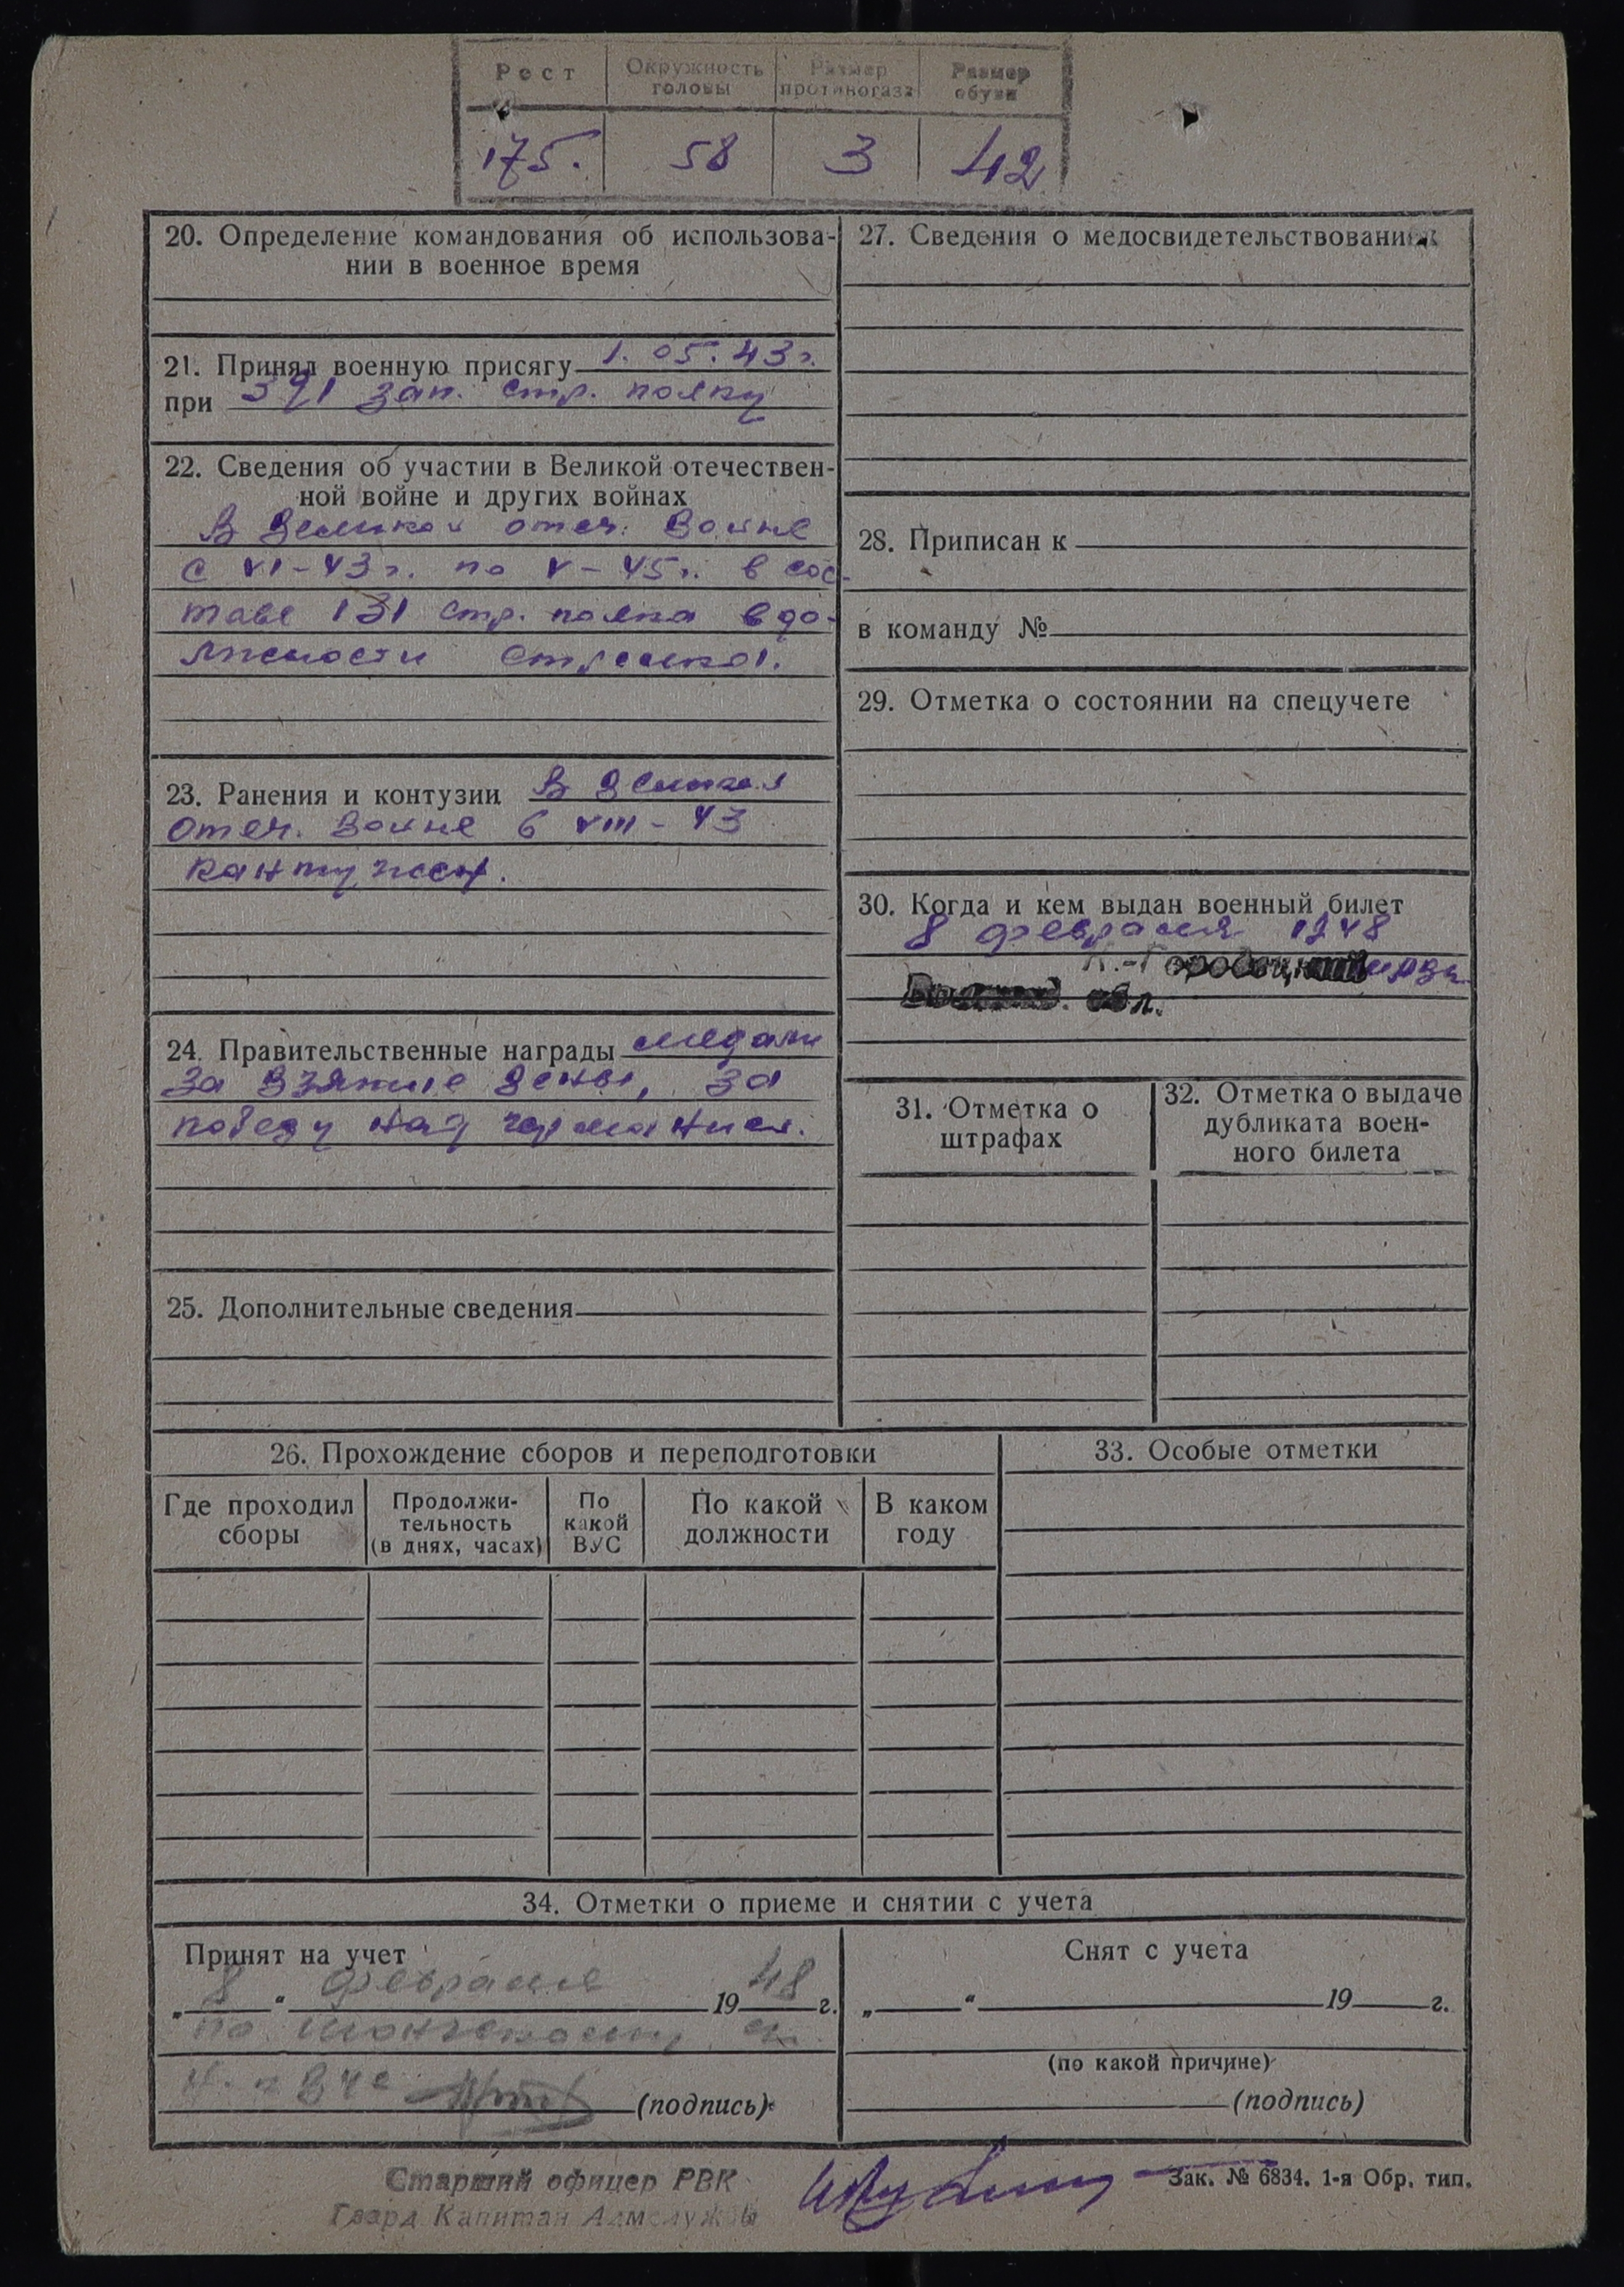 Рост Окружность головы Размер противогаза Размер обуви
175. 58 3 42
20. Определение командования об использова-
нии в военное время
21. Принял военную присягу 1.05.43 г.
при 391 зап. стр. полку
22. Сведения об участии в Великой отечествен-
ной войне и других войнах
В Великой отеч. Войне
с VI-43 г. по V-45 г. в сос-
таве 131 стр. полка в до-
лжности стрелка.
23. Ранения и контузии В Великой
отеч. Войне в VIII-43
кантужен.
24. Правительственные награды медали
за взятие Вены, за
победу над германией.
25. Дополнительные сведения
27. Сведения о медосвидетельствовании
28. Приписан к
в команду №
29. Отметка о состоянии на спецучете
30. Когда и кем выдан военный билет
8 февраля 1948
К.-Городецкий
обл.
31. Отметка о
штрафах
32. Отметка о выдаче
дубликата воен-
ного билета
26. Прохождение сборов и переподготовки
Где проходил сборы Продолжи-тельность (в днях, часах) По какой ВУС По какой должности В каком году
33. Особые отметки
34. Отметки о приеме и снятии с учета
Принят на учет
„ 8 “ февраля 19 48 г.
по
(подпись)
Снят с учета
„ “ 19 г.
(по какой причине)
(подпись)
Старший офицер РВК
Гвард. Капитан
Зак. № 6834. 1-я Обр. тип.